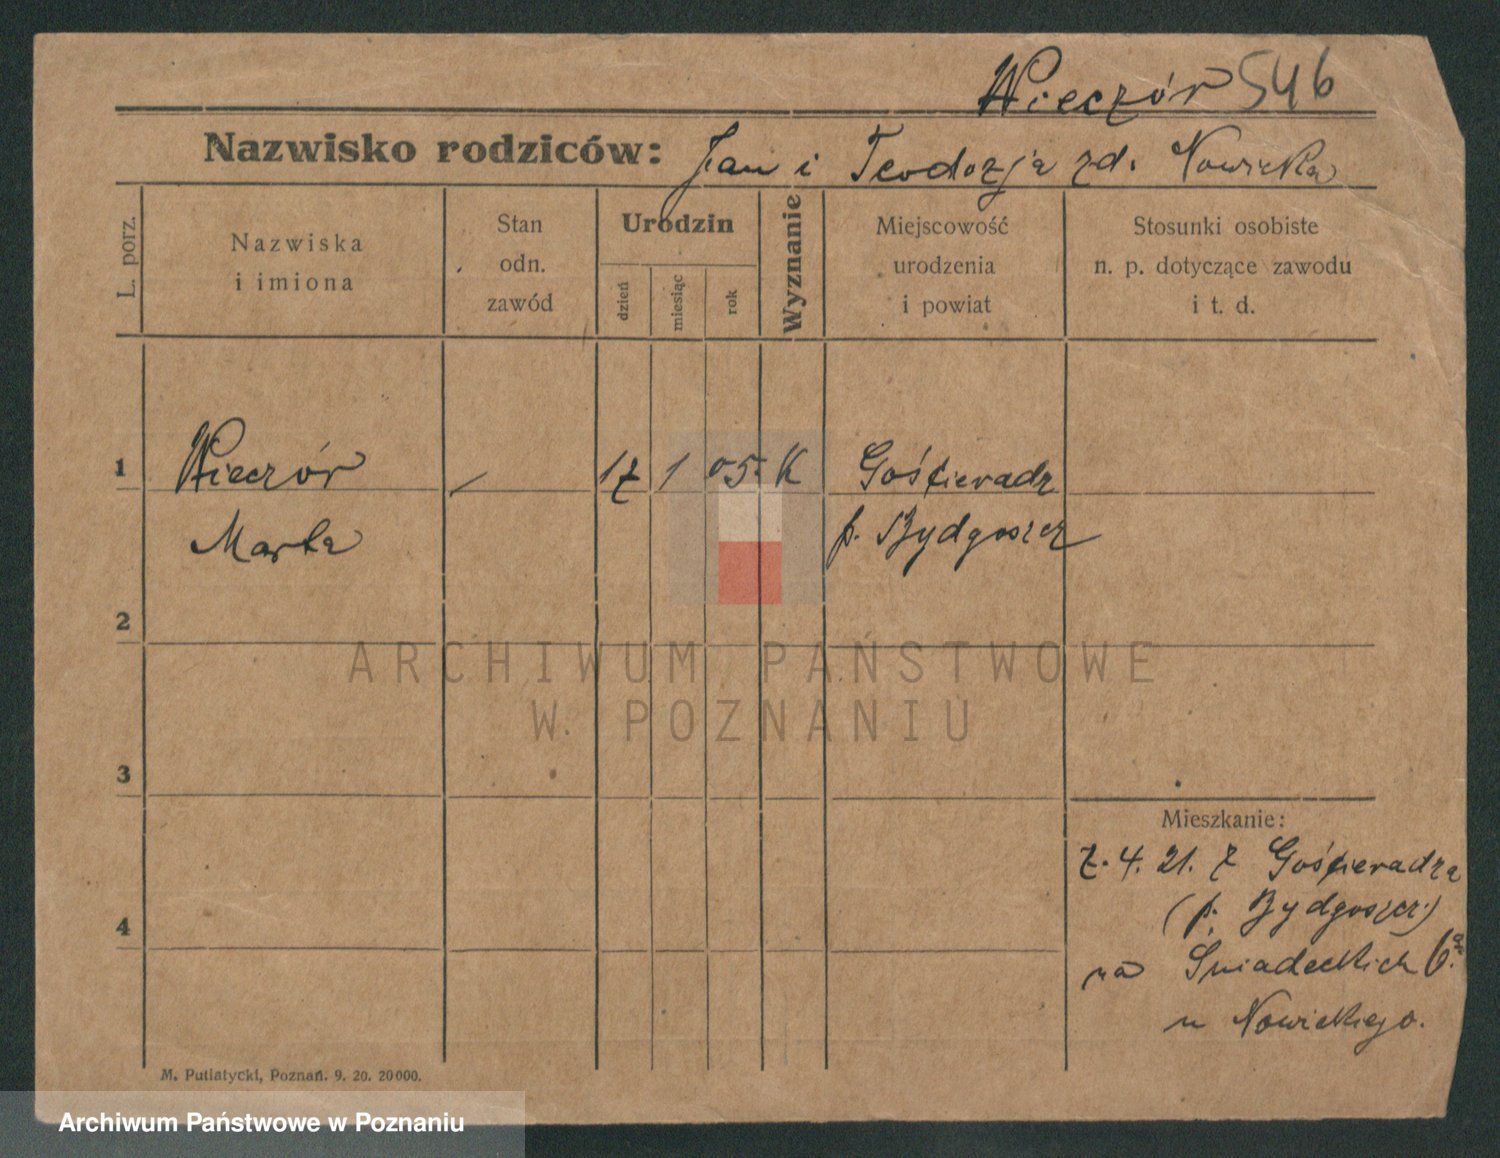 Wieczór 546
Nazwisko rodziców: Jan i Teodozja zd. Nowicka
L. porz.
Nazwiska
i imiona
Stan
odn.
zawód
Urodzin
dzień
miesiąc
rok
Wyznanie
Miejscowość
urodzenia
i powiat
Stosunki osobiste
n. p. dotyczące zawodu
i t. d.
1 Wieczór / 17 1 05. K Gościeradz
Marta p. Bydgoszcz
2
ARCHIWUM PAŃSTWOWE
W POZNANIU
3
Mieszkanie:
7. 4. 21. z Gościeradza
4 (p. Bydgoszcz)
na Śniadeckich 6.a
u Nowickiego.
M. Putiatycki, Poznań. 9. 20. 20000.
Archiwum Państwowe w Poznaniu